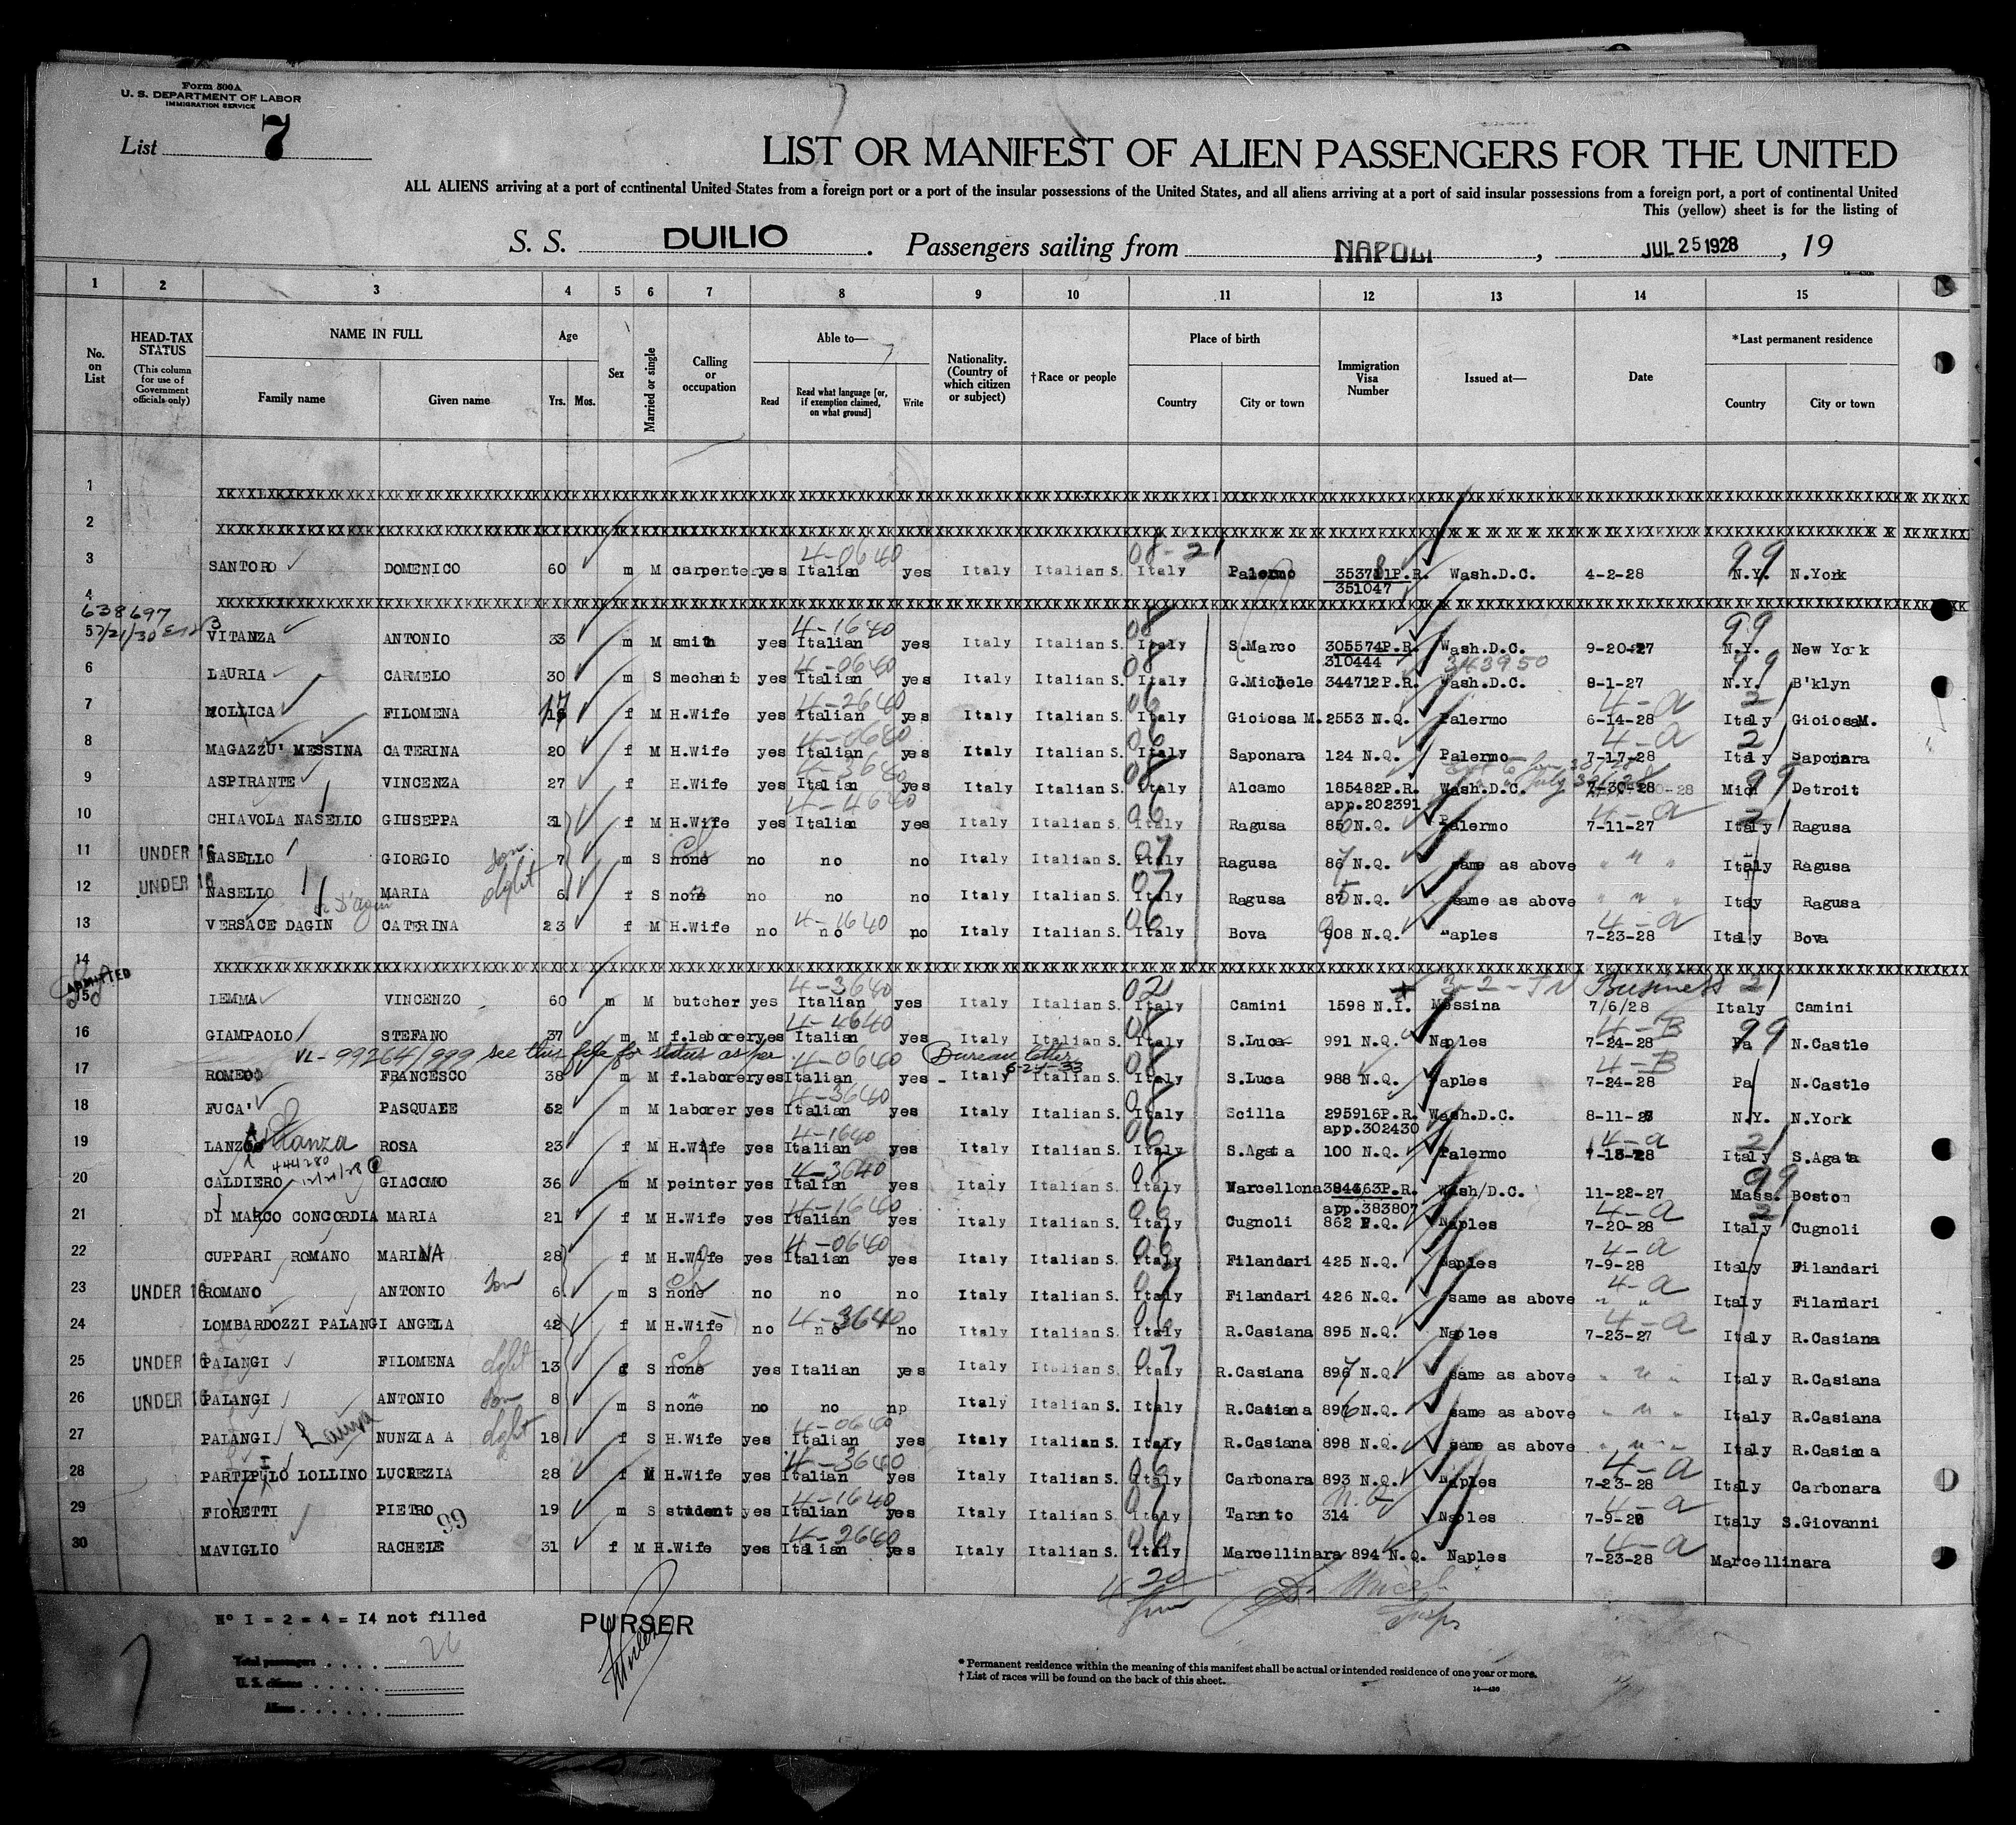 Form 500A
U. S. DEPARTMENT OF LABOR
IMMIGRATION SERVICE
List 7
LIST OR MANIFEST OF ALIEN PASSENGERS FOR THE UNITED
ALL ALIENS arriving at a port of continental United States from a foreign port or a port of the insular possessions of the United States, and all aliens arriving at a port of said insular possessions from a foreign port, a port of continental United
This (yellow) sheet is for the listing of
S. S. DUILIO. Passengers sailing from NAPOLI, JUL 25 1928, 19
1 2 3 4 5 6 7 8 9 10 11 12 13 14 15
No. on List
HEAD-TAX STATUS (This column for use of Government officials only)
NAME IN FULL
Family name Given name
Age Yrs. Mos.
Sex
Married or single
Calling or occupation
Able to— Read Read what language [or, if exemption claimed, on what ground] Write
Nationality. (Country of which citizen or subject)
†Race or people
Place of birth Country City or town
Immigration Visa Number
Issued at—
Date
*Last permanent residence Country City or town
1
2
3 SANTORO DOMENICO 60 m M carpenter yes 4-0640 Italian yes Italy Italian S. 08-21 Italy Palermo P.R. 351047 Wash.D.C. 4-2-28 99 N.Y. N.York
4
638697
5 7/21/30 VITANZA ANTONIO 33 m M smith yes 4-1640 Italian yes Italy Italian S. 08 Italy S.Marco 305574P.R. 310444 Wash.D.C. 9-20-27 99 N.Y. New York
6 LAURIA CARMELO 30 m S mechani yes 4-0640 Italian yes Italy Italian S. 08 Italy G.Michele 344712P.R. 343950 Wash.D.C. 8-1-27 99 N.Y. B'klyn
7 MOLLICA FILOMENA 17 f M H.Wife yes 4-2640 Italian yes Italy Italian S. 06 Italy Gioiosa M. 2553 N.Q. Palermo 4-a 6-14-28 21 Italy GioiosaM.
8 MAGAZZU' MESSINA CATERINA 20 f M H.Wife yes 4-0640 Italian yes Italy Italian S. 06 Italy Saponara 124 N.Q. Palermo 4-a 7-17-28 21 Italy Saponara
9 ASPIRANTE VINCENZA 27 f H.Wife yes 4-3640 Italian yes Italy Italian S. 08 Italy Alcamo 185482P.R. app.202391 Wash.D.C. 7-30-28 99 Mich Detroit
10 CHIAVOLA NASELLO GIUSEPPA 31 f M H.Wife yes 4-4640 Italian yes Italy Italian S. 06 Italy Ragusa 85 N.Q. Palermo 4-a 7-11-27 21 Italy Ragusa
11 UNDER 16 NASELLO GIORGIO son 7 m S none no no no Italy Italian S. 07 Italy Ragusa 86 N.Q. same as above " " " Italy Ragusa
12 UNDER 16 NASELLO MARIA dght 6 f S none no no no Italy Italian S. 07 Italy Ragusa 87 N.Q. same as above " " " Italy Ragusa
13 VERSACE DAGIN CATERINA 23 f M H.Wife no 4-1640 no no Italy Italian S. 06 Italy Bova 908 N.Q. Naples 4-a 7-23-28 Italy Bova
14
ADMITTED
15 LEMMA VINCENZO 60 m M butcher yes 4-3640 Italian yes Italy Italian S. 02 Italy Camini 1598 N.I. Messina Business 7/6/28 21 Italy Camini
16 GIAMPAOLO STEFANO 37 m M f.laborer yes 4-4640 Italian yes Italy Italian S. 08 Italy S.Luca 991 N.Q. Naples 4-B 7-24-28 99 Pa N.Castle
VL-99264/999 see this file for status as per Bureau letter 6-24-33
17 ROMEO FRANCESCO 38 m M f.laborer yes 4-0640 Italian yes Italy Italian S. 08 Italy S.Luca 988 N.Q. Naples 4-B 7-24-28 Pa N.Castle
18 FUCA' PASQUALE 52 m M laborer yes 4-3640 Italian yes Italy Italian S. Italy Scilla 295916P.R. app.302430 Wash.D.C. 8-11-28 N.Y. N.York
19 LANZO Lanza ROSA 23 f M H.Wife yes 4-1640 Italian yes Italy Italian S. 06 Italy S.Agata 100 N.Q. Palermo 4-a 7-18-28 21 Italy S.Agata
444280 12/21/28
20 CALDIERO GIACOMO 36 m M peinter yes 4-3640 Italian yes Italy Italian S. 08 Italy Marcellona 384663P.R. app.383807 Wash/D.C. 11-22-27 99 Mass. Boston
21 DI MARCO CONCORDIA MARIA 21 f M H.Wife yes 4-1640 Italian yes Italy Italian S. 06 Italy Cugnoli 862 N.Q. Naples 4-a 7-20-28 21 Italy Cugnoli
22 CUPPARI ROMANO MARINNA 28 f M H.Wife yes 4-0640 Italian yes Italy Italian S. 06 Italy Filandari 425 N.Q. Naples 4-a 7-9-28 Italy Filandari
23 UNDER 16 ROMANO ANTONIO son 6 m S none no no no Italy Italian S. 07 Italy Filandari 426 N.Q. same as above 4-a " " Italy Filandari
24 LOMBARDOZZI PALANGI ANGELA 42 f M H.Wife no 4-3640 no no Italy Italian S. 06 Italy R.Casiana 895 N.Q. Naples 4-a 7-23-27 Italy R.Casiana
25 UNDER 16 PALANGI FILOMENA dght 13 f S none yes Italian yes Italy Italian S. 07 Italy R.Casiana 897 N.Q. same as above " " " Italy R.Casiana
26 UNDER 16 PALANGI ANTONIO son 8 m S none no no np Italy Italian S. Italy R.Casiana 896 N.Q. same as above " " " Italy R.Casiana
27 PALANGI NUNZIA A dght 18 f S H.Wife yes 4-0640 Italian yes Italy Italian S. Italy R.Casiana 898 N.Q. same as above " " " Italy R.Casiana
28 PARTIPILO LOLLINO LUCREZIA 28 f M H.Wife yes 4-3640 Italian yes Italy Italian S. 06 Italy Carbonara 893 N.Q. Naples 4-a 7-23-28 Italy Carbonara
29 FIORETTI PIETRO 19 m S student yes 4-1640 Italian yes Italy Italian S. 07 Italy Taranto 314 N.Q. Naples 4-a 7-9-28 Italy S.Giovanni
30 MAVIGLIO RACHELE 99 31 f M H.Wife yes 4-2640 Italian yes Italy Italian S. 06 Italy Marcellinara 894 N.Q. Naples 4-a 7-23-28 Marcellinara
N° I = 2 = 4 = I4 not filled
PURSER
Total passengers 26
U. S. citizens
Aliens
* Permanent residence within the meaning of this manifest shall be actual or intended residence of one year or more.
† List of races will be found on the back of this sheet.
14—430